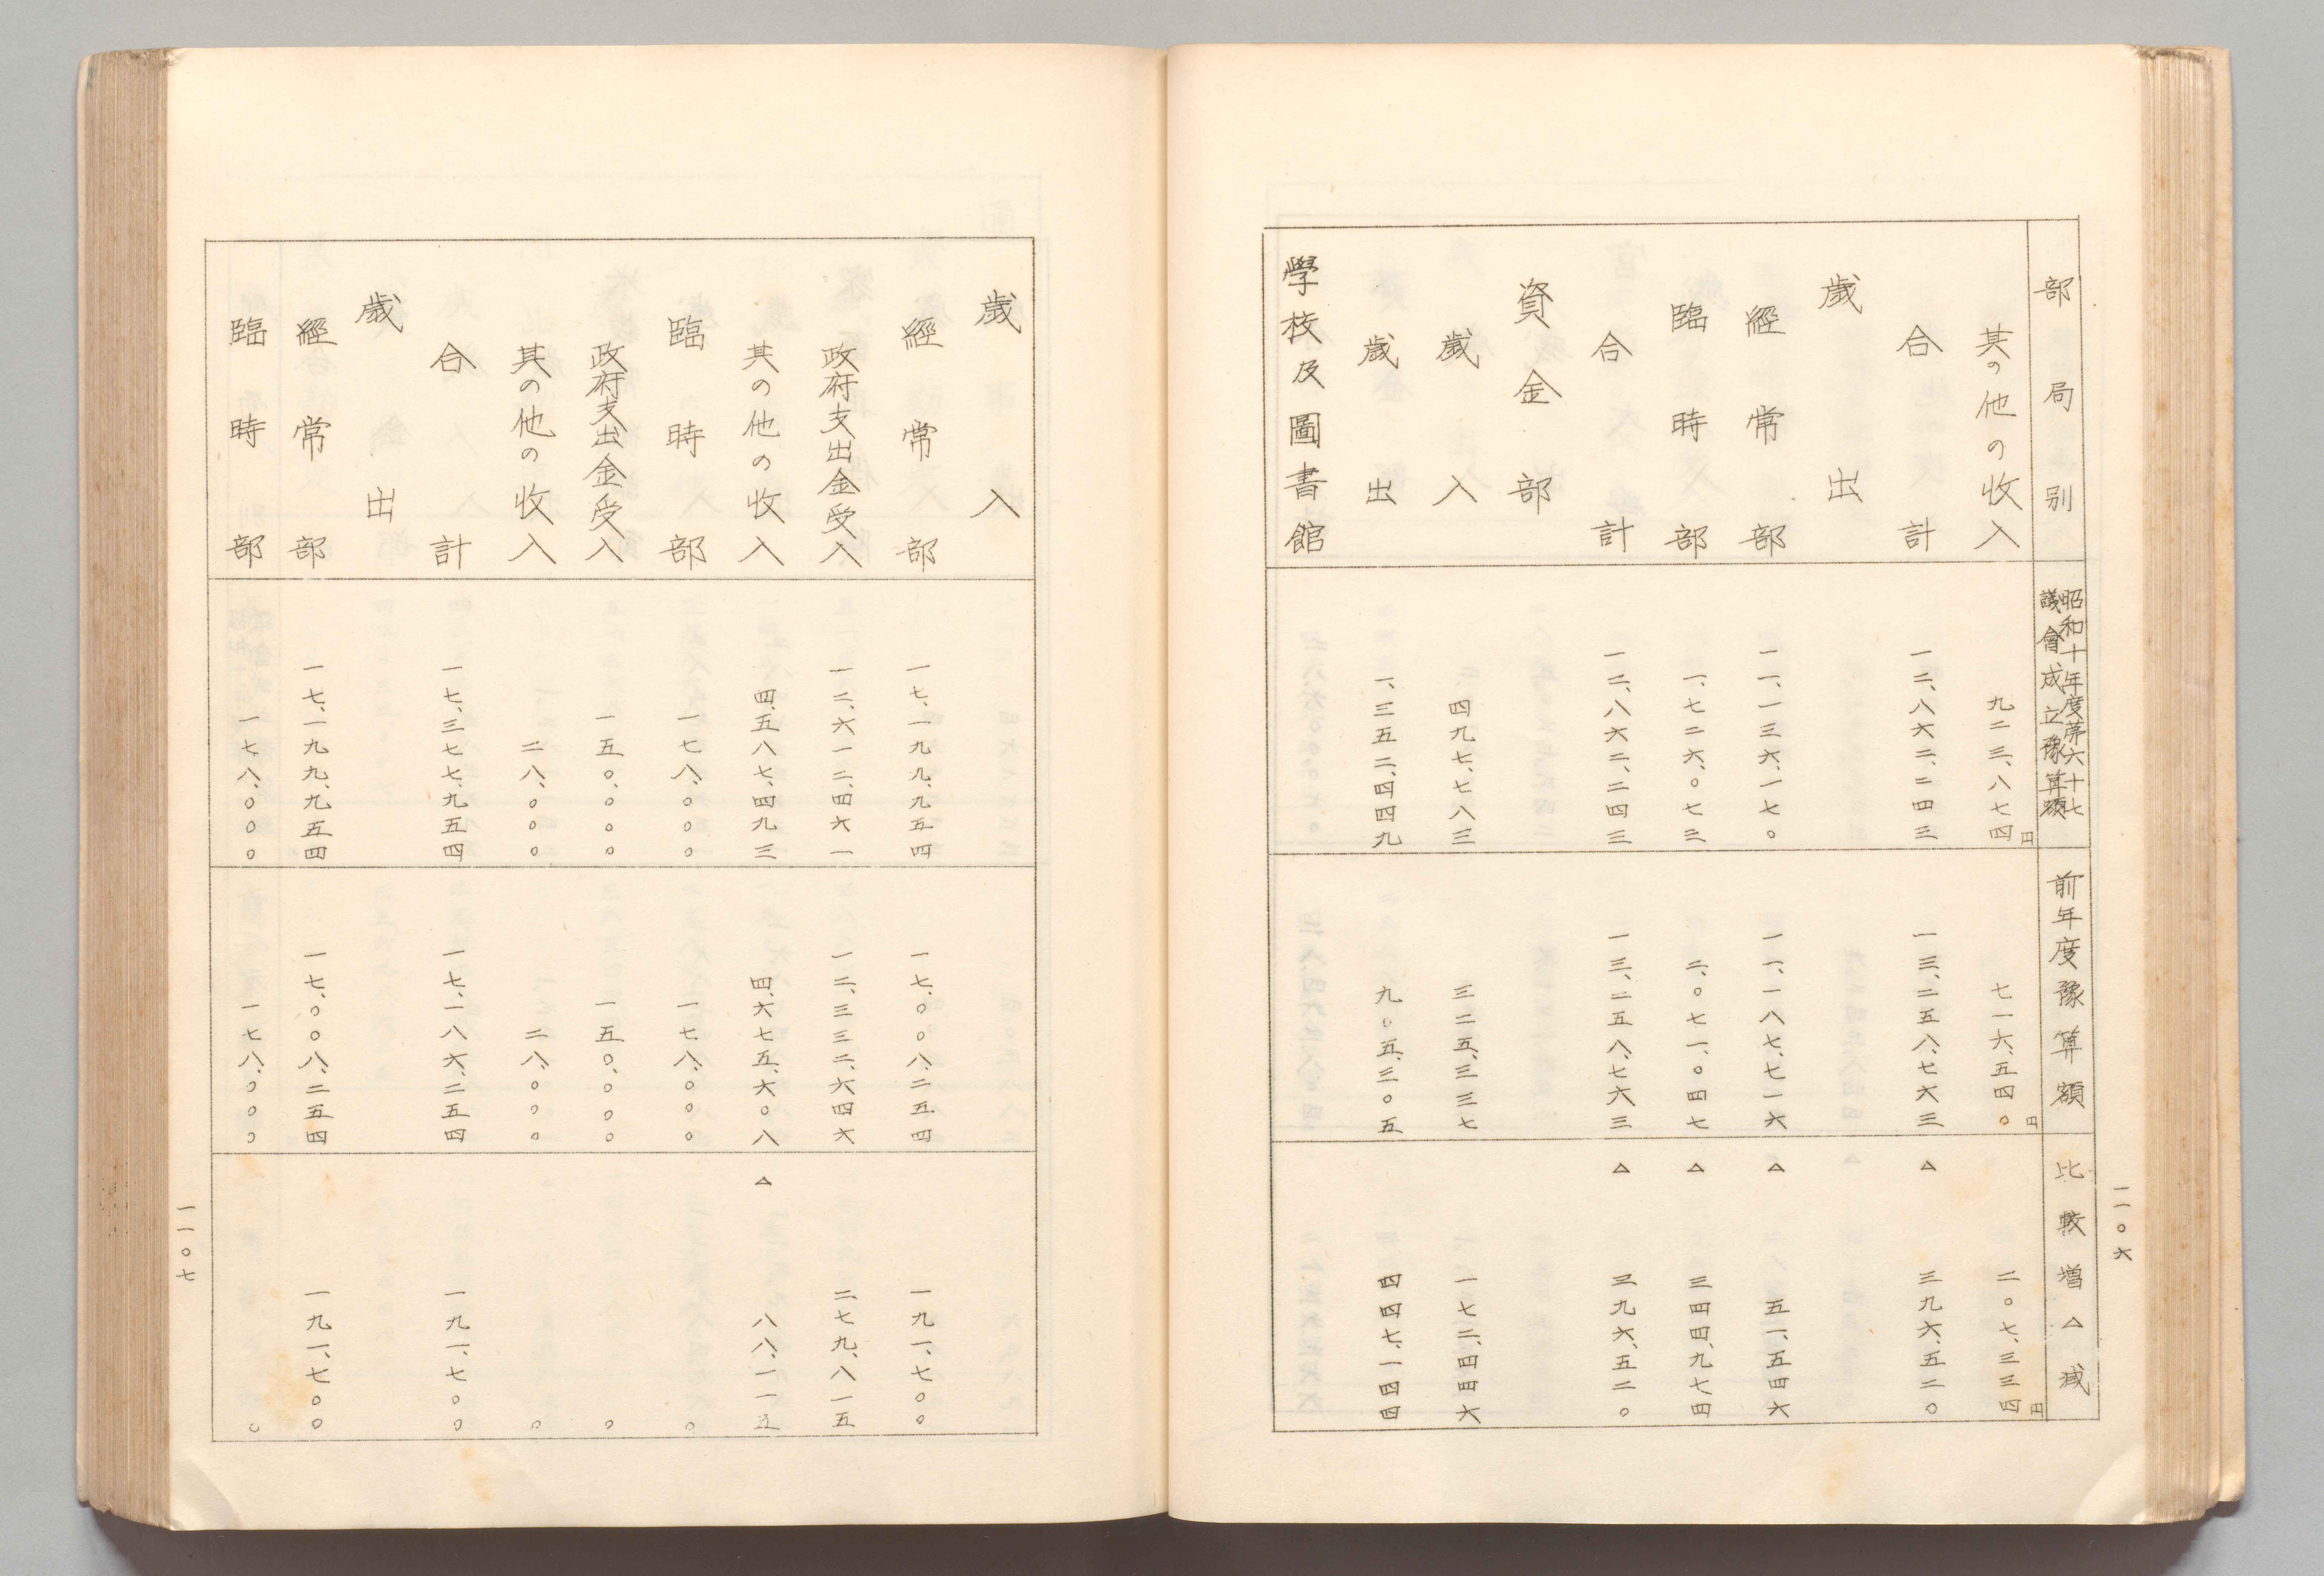 部局別
昭和十年度第六十七
議會成立豫算額
前年度豫算額
比較増△減
其の他の收入 九二三、八七四円 七一六、五四〇円 二〇七、三三四円
合計 一二、八六二、二四三 一三、二五八、七六三 △ 三九六、五二〇
歲出
經常部 一一、一三六、一七〇 一一、一八七、七一六 △ 五一、五四六
臨時部 一、七二六、〇七三 二、〇七一、〇四七 △ 三四四、九七四
合計 一二、八六二、二四三 一三、二五八、七六三 △ 三九六、五二〇
資金部
歲入 四九七、七八三 三二五、三三七 一七二、四四六
歲出 一、三五二、四四九 九〇五、三〇五 四四七、一四四
學校及圖書館
一一〇六
歲入
經常部 一七、一九九、九五四 一七、〇〇八、二五四 一九一、七〇〇
政府支出金受入 一二、六一二、四六一 一二、三三二、六四六 二七九、八一五
其の他の收入 四、五八七、四九三 四、六七五、六〇八 △ 八八、一一五
臨時部 一七八、〇〇〇 一七八、〇〇〇 〇
政府支出金受入 一五〇、〇〇〇 一五〇、〇〇〇 〇
其の他の收入 二八、〇〇〇 二八、〇〇〇 〇
合計 一七、三七七、九五四 一七、一八六、二五四 一九一、七〇〇
歲出
經常部 一七、一九九、九五四 一七、〇〇八、二五四 一九一、七〇〇
臨時部 一七八、〇〇〇 一七八、〇〇〇 〇
一一〇七